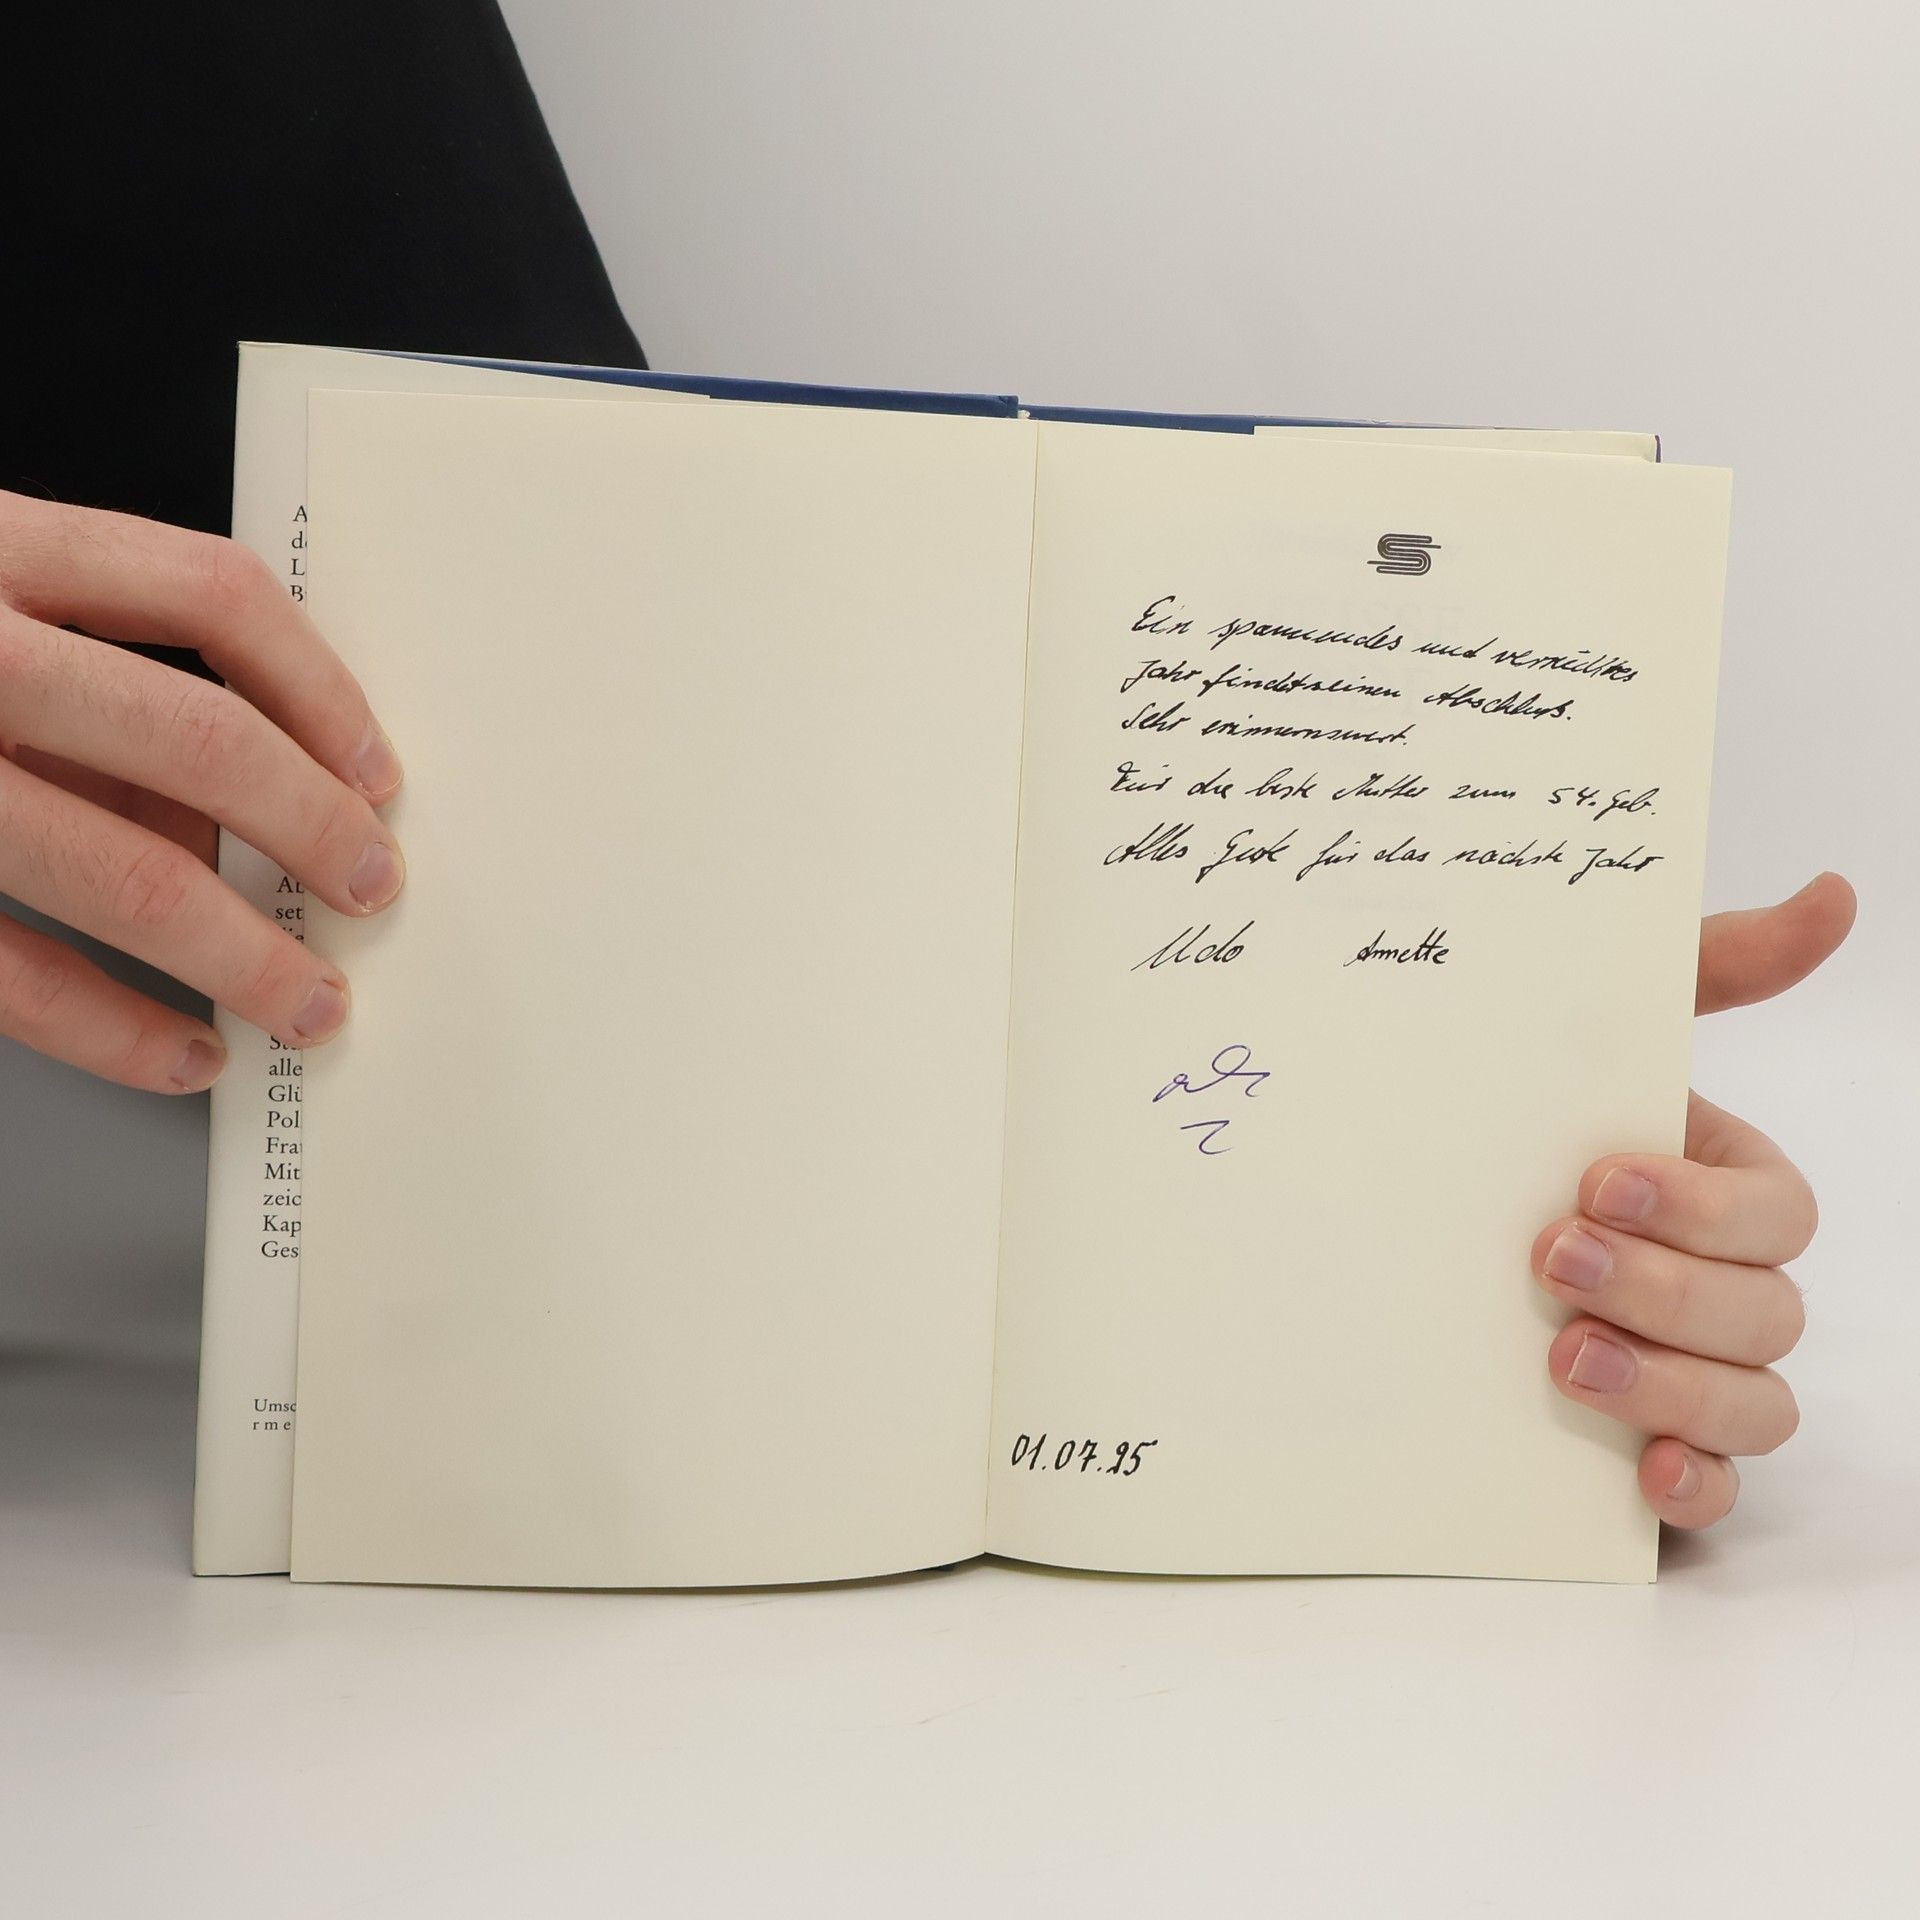 A
de
L
B
Ab
set
die
Stu
alle
Glü
Pol
Fra
Mit
zeic
Kap
Ges
Umsc
rme
S
Ein spannendes und verrücktes
Jahr findet seinen Abschluß.
Sehr erinnernswert.
Für die beste Mutter zum 54. Geb.
Alles Gute für das nächste Jahr
Udo Annette
01.07.95